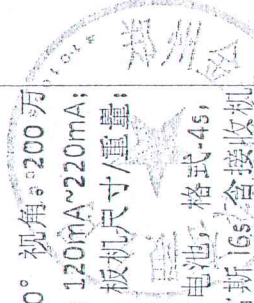 0° 视角。200 万
120mA~220mA;
板机尺寸/重量;
电池, 格式-4s,
斯 i6s 含接收机
郑州